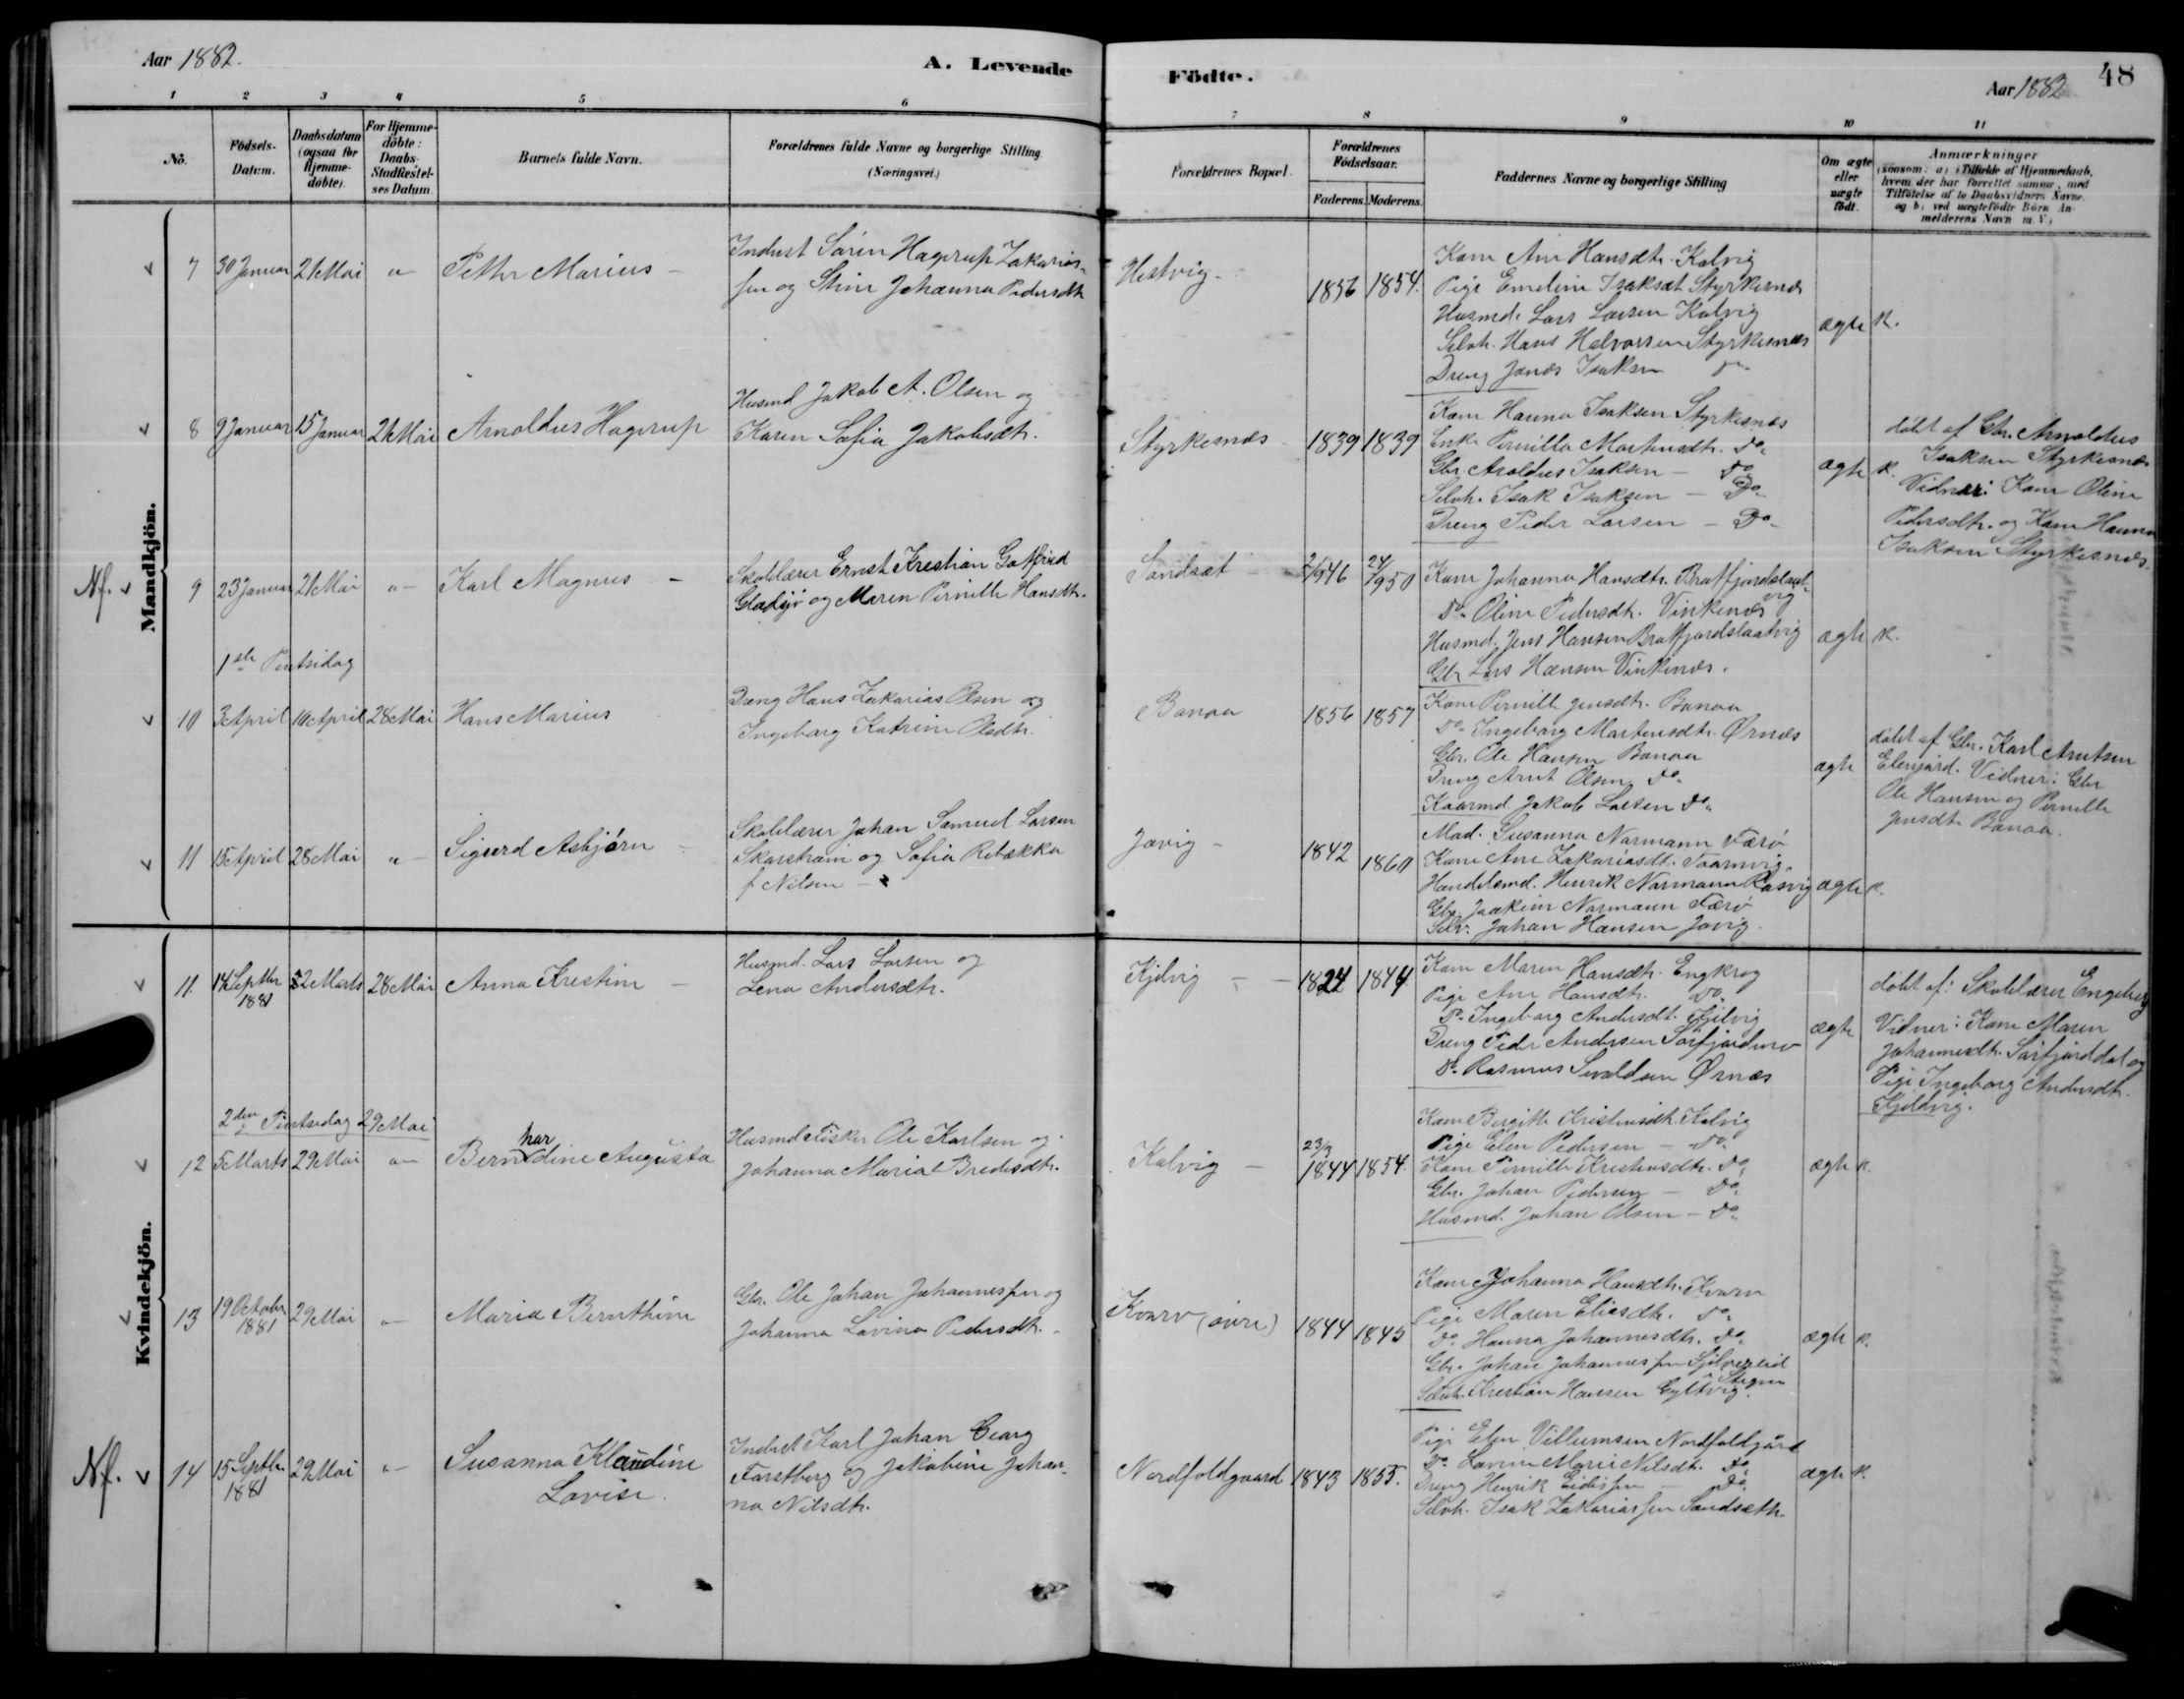 Aar 1882.
A. Levende
Födte.
Aar 1882
48
1 2 3 4 5 6 7 8 9 10 11
No.
Födsels-
Datum.
Daabsdatum
(ogsaa for
Hjemme-
döbte).
For Hjemme-
döbte:
Daabs-
Stadfæstel-
ses Datum.
Barnets fulde Navn.
Forældrenes fulde Navne og borgerlige Stilling
(Næringsvei.)
Forældrenes Bopæl.
Forældrenes
Födselsaar.
Faderens. Moderens.
Faddernes Navne og borgerlige Stilling
Om ægte
eller
uægte
födt.
Anmærkninger
(saasom: a) i Tilfælde af Hjemmedaab,
hvem der har forrettet samme, med
Tilföielse af to Daabsvidners Navne
og b) ved uægtefödte Börn An-
melderens Navn m. V.)
Mandkjön.
7 30 Januar 21 Mai "- Petter Marius -
Inderst Sören Hagerup Zakarias-
sen og Stine Johanna Pedersdtr
Hestvig -
1856 1854.
Kone Ane Hansdtr. Kalvig
Pige Emeline Isaksdt Styrkesnes
Husmd. Lars Larsen Kalvig
Selvh. Hans Halvorsen Styrkesnæs
Dreng Jonas Isaksen do
ægte K.
8 9 Januar 15 Januar 21 Mai Arnoldus Hagerup
Husmd Jakob A. Olsen og
Karen Sofia Jakobsdtr.
Styrkesnæs
1839 1839
Kone Hanna Isaksen Styrkesnæs
Enke Pernilla Mortensdtr. do
Gbr. Arnoldus Isaksen - do
Selvh. Isak Isaksen - Do
Dreng Peder Larsen - Do
ægte K.
döbt af Gbr. Arnoldus
Isaksen Styrkesnæs
Vidner: Kone Oline
Pedersdtr. og Kone Hanna
Isaksen Styrkesnæs.
Nf. 9 23 Januar 21 Mai "- Karl Magnus -
Skolelærer Ernst Kristian Gotfried
Gladsjø og Maren Pernille Hansdtr.
Sandsæt
1846 24/9 1850
Kone Johanna Hansdtr. Bratfjordslaat-
vig
Do Oline Pedersdtr. Vinkenes
Husmd. Jens Hansen Bratfjordslaatvig
Gbr Lars Hansen Vinkenæs.
ægte K.
1ste Pintsedag
10 3 April 10 April 28 Mai Hans Marius
Dreng Hans Zakarias Olsen og
Ingeborg Katrine Olsdtr.
Bonaa
1856 1857
Kone Pernille Jensdtr. Bonaa
Do Ingeborg Martensdtr. Ørnes
Gbr. Ole Hansen Bonaa
Dreng Arnt Olsen do
Kaarmd. Jakob Larsen do
ægte
döbt af Gbr. Karl Arntsen
Elenjord. Vidner: Gbr
Ole Hansen og Pernille
Jensdtr. Bonaa.
11 15 April 28 Mai "- Sigurd Asbjørn
Skolelærer Johan Samuel Larsen
Skarstrøm og Sofia Rebækka
f. Nilsen -
Jøvig -
1842 1860
Mad. Susanna Normann Færø
Kone Ane Zakariasdt. Taarnvig.
Handelsmd. Henrik Normann Røsvig
Gbr. Joakim Normann Færø
Selv. Johan Hansen Jøvig.
ægte K.
Kvindekjön.
11. 14 Septbr 1881 22 Marts 28 Mai Anna Kristine -
Husmd. Lars Larsen og
Lena Andersdtr.
Kjelvig - -
1824 1844
Kone Maren Hansdtr. Engkrog
Pige Ane Hansdtr. Do
Do Ingeborg Andersdt. Kjelvig
Dreng Peder Andersen Sørfjordmo
Do Rasmus Sivaldsen Ørnæs
ægte
döbt af: Skolelærer Engeberg
Vidner: Kone Maren
Johannesdtr. Sørfjorddal og
Pige Ingeborg Andersdtr.
Kjeldvig.
2den Pintsedag 29 Mai
12 5 Marts 29 Mai "- Bernhardine Augusta
Husmd Fisker Ole Karlsen og
Johanna Maria Bredesdtr.
Kalvig -
23/3 1844 1854.
Kone Birgitte Kristensdtr. Kalvig
Pige Elen Pedersen - do
Kone Pernille Kristensdtr. Do
Gbr. Johan Pedersen - Do
Husmd. Johan Olsen - Do
ægte K.
13 19 Octobr 1881 29 Mai "- Maria Bernthine
Gbr. Ole Johan Johannessen og
Johanna Lovina Pedersdtr.
Kvarv (øvre)
1844 1845
Kone Johanna Hansdtr. Kvarv
Pige Maren Eliasdtr. do
Do Hanna Johannesdtr. do
Gbr. Johan Johannessen
Stegen
Selvh. Kristian Hansen Gyltvig.
ægte K.
Nf. 14 15 Septbr 1881 29 Mai "- Susanna Klaudine
Lovise.
Inderst Karl Johan Georg
Forstberg og Jakobine Johan-
na Nilsdtr.
Nordfoldgaard
1843 1855.
Pige Elen Villumsen Nordfoldgård
Do Lovine Marie Nilsdtr. Do
Dreng Henrik Eidissen - Do
Selvh. Isak Zakariassen Sandsæth
ægte K.